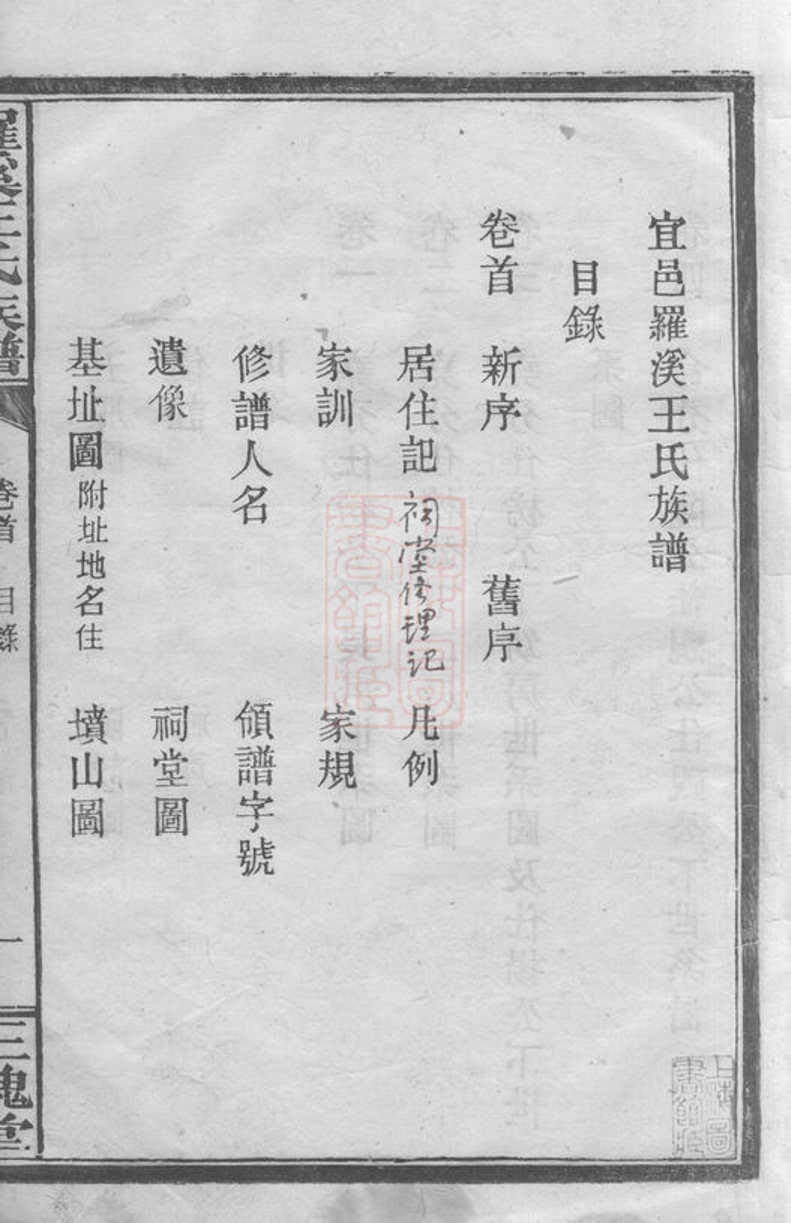 宜邑羅溪王氏族譜
目錄
卷首 新序 舊序
居住記 祠堂修理記 凡例
家訓 家規
修譜人名 領譜字號
遺像 祠堂圖
基址圖附址地名住 墳山圖
羅溪王氏族譜 卷首 目錄 一 三槐堂